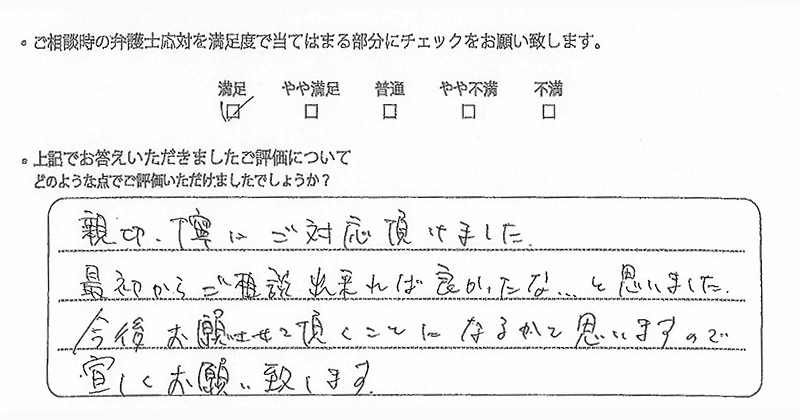 ・ご相談時の弁護士応対を満足度で当てはまる部分にチェックをお願い致します。
満足 やや満足 普通 やや不満 不満
☑ □ □ □ □
・上記でお答えいただきましたご評価について
どのような点でご評価いただけましたでしょうか？
親切、丁寧にご対応頂けました.
最初からご相談出来れば良かったな...と思いました.
今後お願いさせて頂くことになるかと思いますので
宜しくお願い致します.